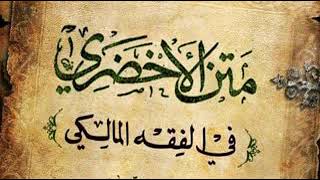 متن الأخضري
في الفقه المالكي